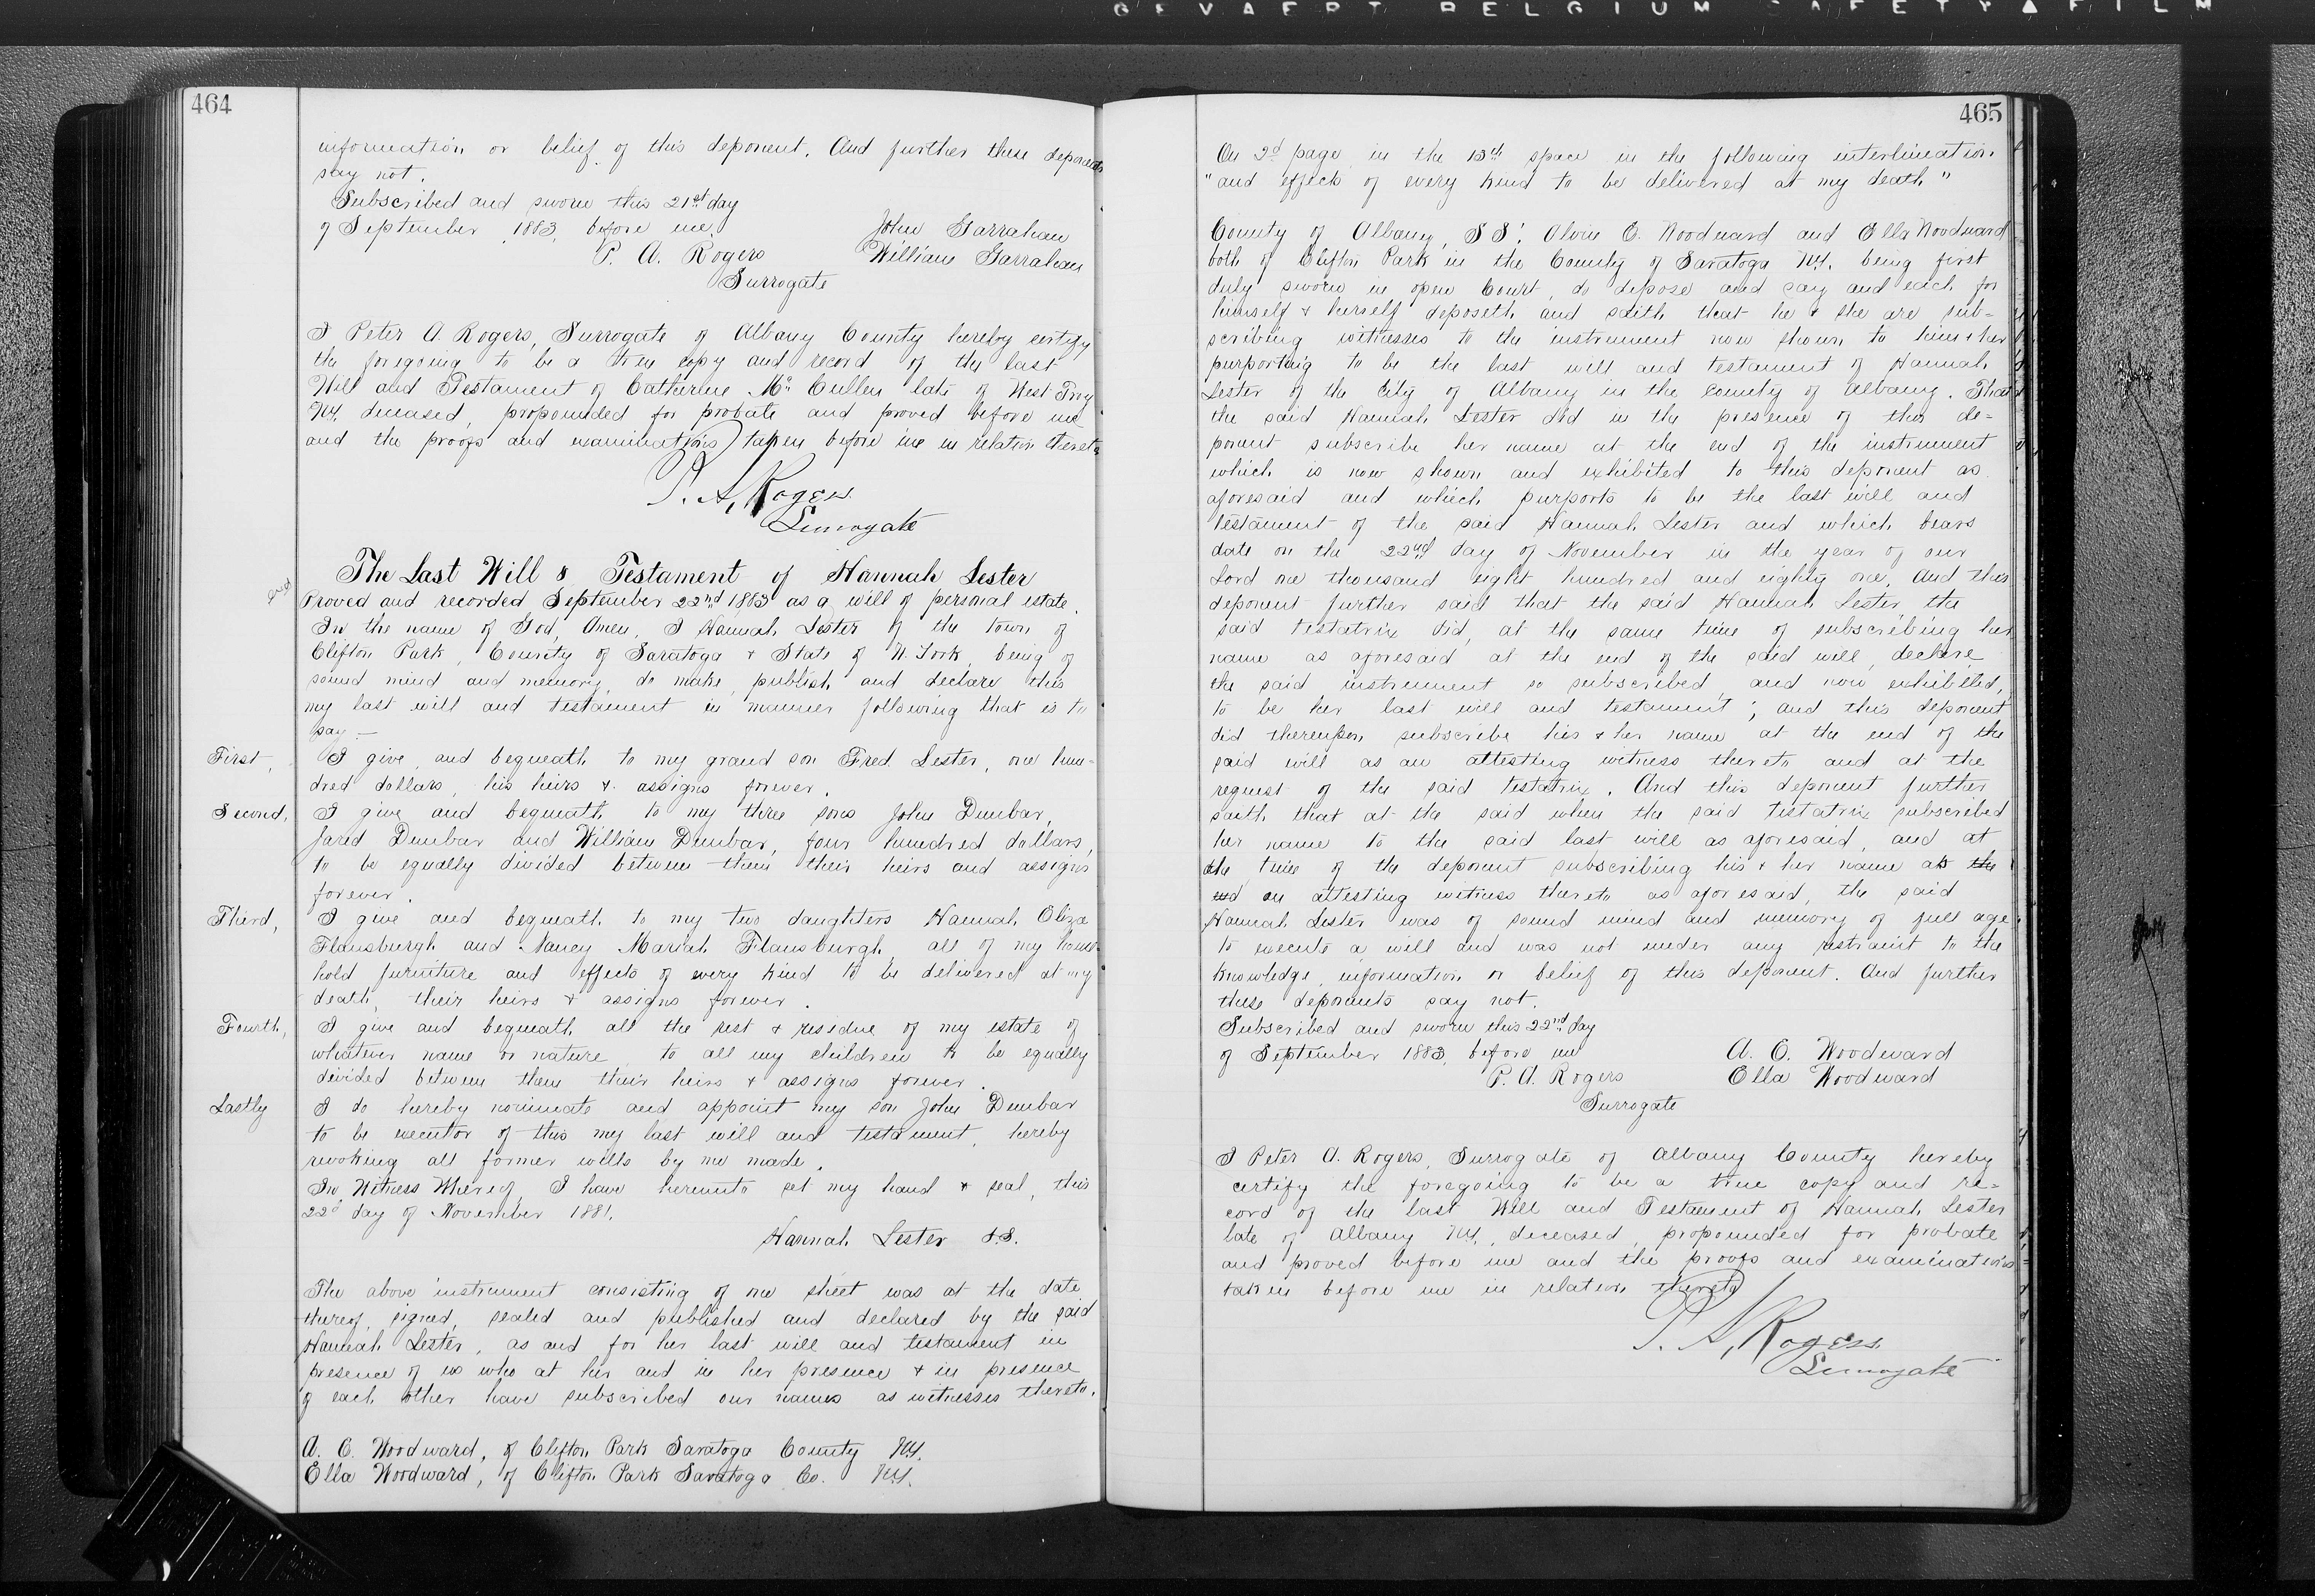 GEVAERT BELGIUM SAFETY FILM
464
information or belief of this deponent. And further these deponents
say not.
Subscribed and sworn this 21st day
of September 1883, before me.
John Garrahan
P. A. Rogers
William Garrahan
Surrogate
I Peter A. Rogers, Surrogate of Albany County hereby certify
the foregoing to be a true copy and record of the last
Will and Testament of Catherine Mc Cullen late of West Troy
N.Y. deceased, propounded for probate and proved before me
and the proofs and examinations taken before me in relation thereto
P. A. Rogers
Surrogate
The Last Will & Testament of Hannah Lester
Proved and recorded September 22nd 1883 as a will of personal estate.
In the name of God, Amen, I Hannah Lester of the town of
Clifton Park, County of Saratoga & State of N. York, being of
sound mind and memory, do make, publish and declare this
my last will and testament in manner following that is to
say —
First, I give and bequeath to my grand son Fred Lester, one hun-
dred dollars, his heirs & assigns forever.
Second, I give and bequeath to my three sons John Dunbar,
Jared Dunbar and William Dunbar, four hundred dollars,
to be equally divided between them their heirs and assigns
forever.
Third, I give and bequeath to my two daughters Hannah Eliza
Flansburgh and Nancy Mariah Flansburgh, all of my house-
hold furniture and effects of every kind to be delivered at my
death, their heirs & assigns forever.
Fourth, I give and bequeath all the rest & residue of my estate of
whatever name or nature to all my children to be equally
divided between them their heirs & assigns forever.
Lastly I do hereby nominate and appoint my son John Dunbar
to be executor of this my last will and testament, hereby
revoking all former wills by me made.
In Witness Whereof, I have hereunto set my hand & seal, this
22d day of November 1881.
Hannah Lester L.S.
The above instrument consisting of one sheet was at the date
thereof, signed, sealed and published and declared by the said
Hannah Lester, as and for her last will and testament in
presence of us who at her and in her presence & in presence
of each other have subscribed our names as witnesses thereto.
A. E. Woodward, of Clifton Park Saratoga County N.Y.
Ella Woodward, of Clifton Park Saratoga Co. N.Y.
465
On 2d page in the 13th space in the following interlineation
"and effects of every kind to be delivered at my death"
County of Albany, SS: Alvin E. Woodward and Ella Woodward
both of Clifton Park in the County of Saratoga N.Y. being first
duly sworn in open Court, do depose and say and each for
himself & herself deposeth and saith that he & she are sub-
scribing witnesses to the instrument now shown to him & her
purporting to be the last will and testament of Hannah
Lester of the City of Albany in the county of Albany. That
the said Hannah Lester did in the presence of this de-
ponent subscribe her name at the end of the instrument
which is now shown and exhibited to this deponent as
aforesaid and which purports to be the last will and
testament of the said Hannah Lester and which bears
date on the 22nd day of November in the year of our
Lord one thousand eight hundred and eighty one. And this
deponent further said that the said Hannah Lester the
said testatrix did, at the same time of subscribing her
name as aforesaid at the end of the said will, declare
the said instrument so subscribed, and now exhibited,
to be her last will and testament; and this deponent
did thereupon subscribe his & her name at the end of the
said will as an attesting witness thereto and at the
request of the said testatrix. And this deponent further
saith that at the said when the said testatrix subscribed
her name to the said last will as aforesaid, and at
the time of the deponent subscribing his & her name as the
end an attesting witness thereto as aforesaid, the said
Hannah Lester was of sound mind and memory of full age
to execute a will and was not under any restraint to the
knowledge, information or belief of this deponent. And further
these deponents say not.
Subscribed and sworn this 22nd day
of September 1883, before me
A. E. Woodward
P. A. Rogers
Ella Woodward
Surrogate
I Peter A. Rogers, Surrogate of Albany County hereby
certify the foregoing to be a true copy and re-
cord of the last Will and Testament of Hannah Lester
late of Albany N.Y., deceased, propounded for probate
and proved before me and the proofs and examinations
taken before me in relation thereto
P. A. Rogers
Surrogate